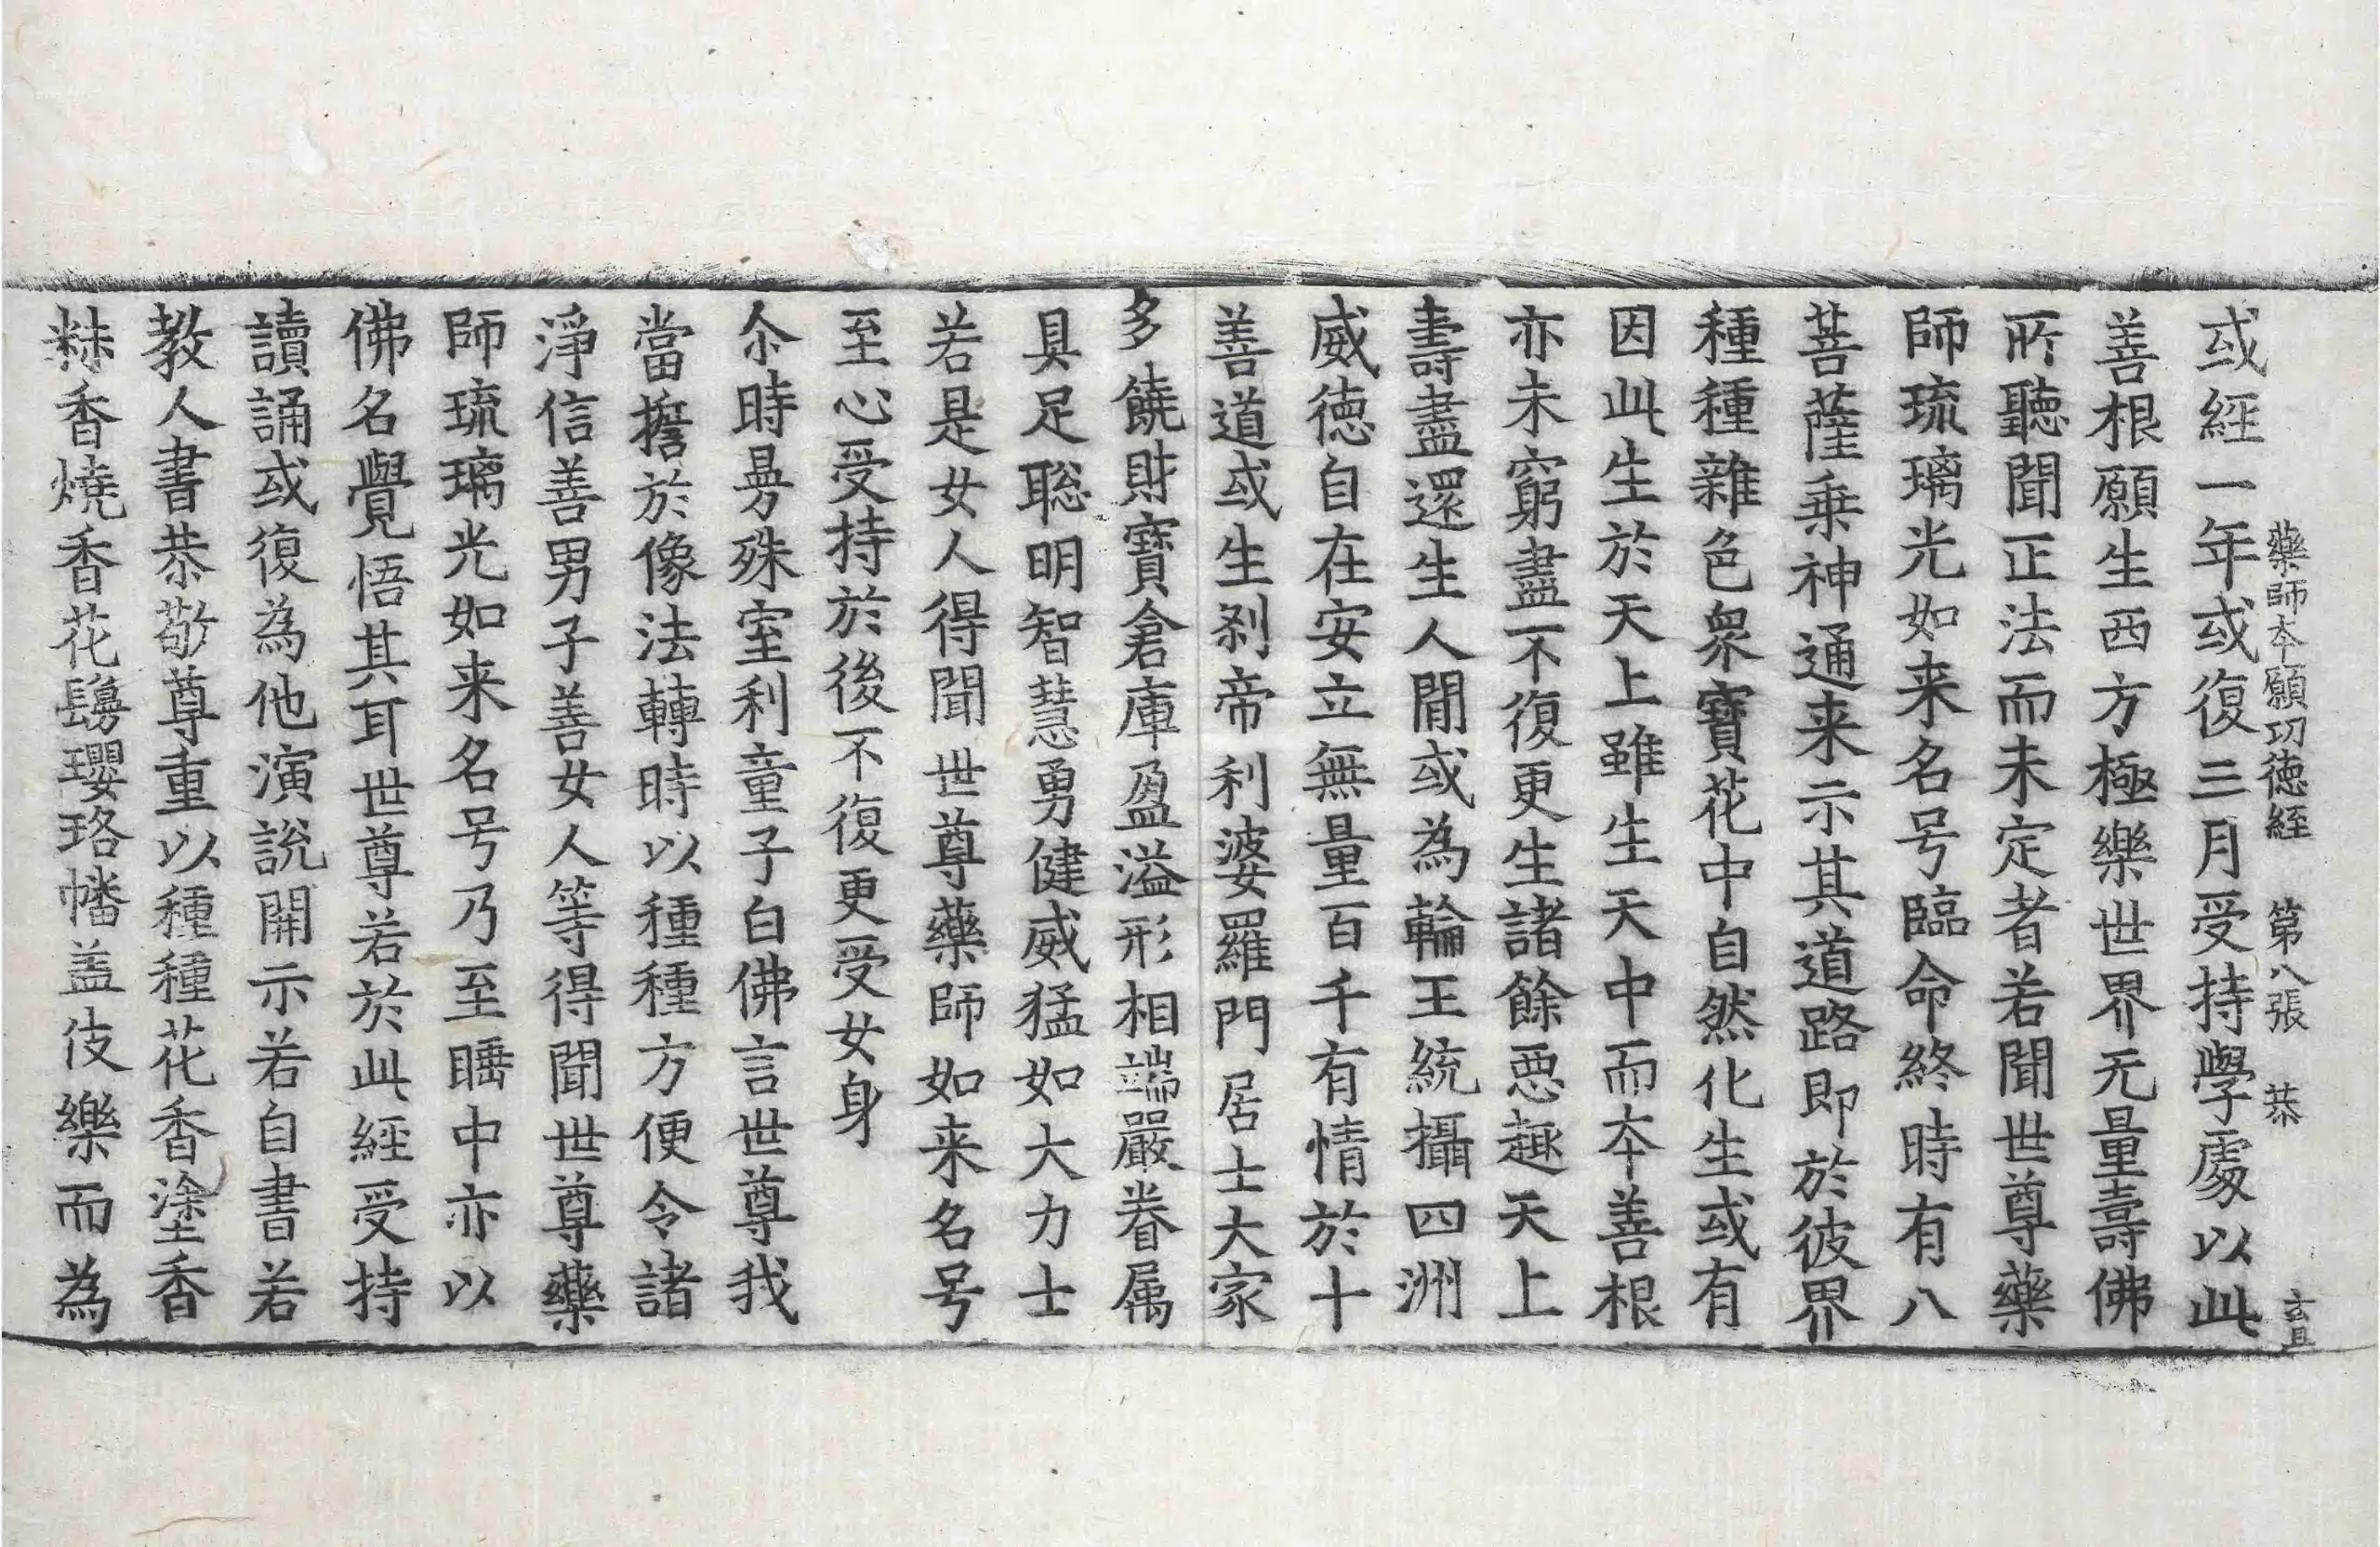 藥師本願功德經 第八張 恭 玄且
或經一年或復三月受持學處以此
善根願生西方極樂世界无量壽佛
所聽聞正法而未定者若聞世尊藥
師琉璃光如来名号臨命終時有八
菩薩乗神通来示其道路即於彼界
種種雜色衆寶花中自然化生或有
因此生於天上雖生天中而夲善根
亦未窮盡不復更生諸餘惡趣天上
壽盡還生人閒或為輪王統攝四洲
威徳自在安立無量百千有情於十
善道或生剎帝利婆羅門居士大家
多饒財寶倉庫盈溢形相端嚴眷属
具足聡明智慧勇健威猛如大力士
若是女人得聞世尊藥師如来名号
至心受持於後不復更受女身
尒時曼殊室利童子白佛言世尊我
當誓於像法轉時以種種方便令諸
淨信善男子善女人等得聞世尊藥
師琉璃光如来名号乃至睡中亦以
佛名覺悟其耳世尊若於此經受持
讀誦或復為他演說開示若自書若
教人書恭敬尊重以種種花香塗香
粖香燒香花鬘瓔珞幡盖伎樂而為